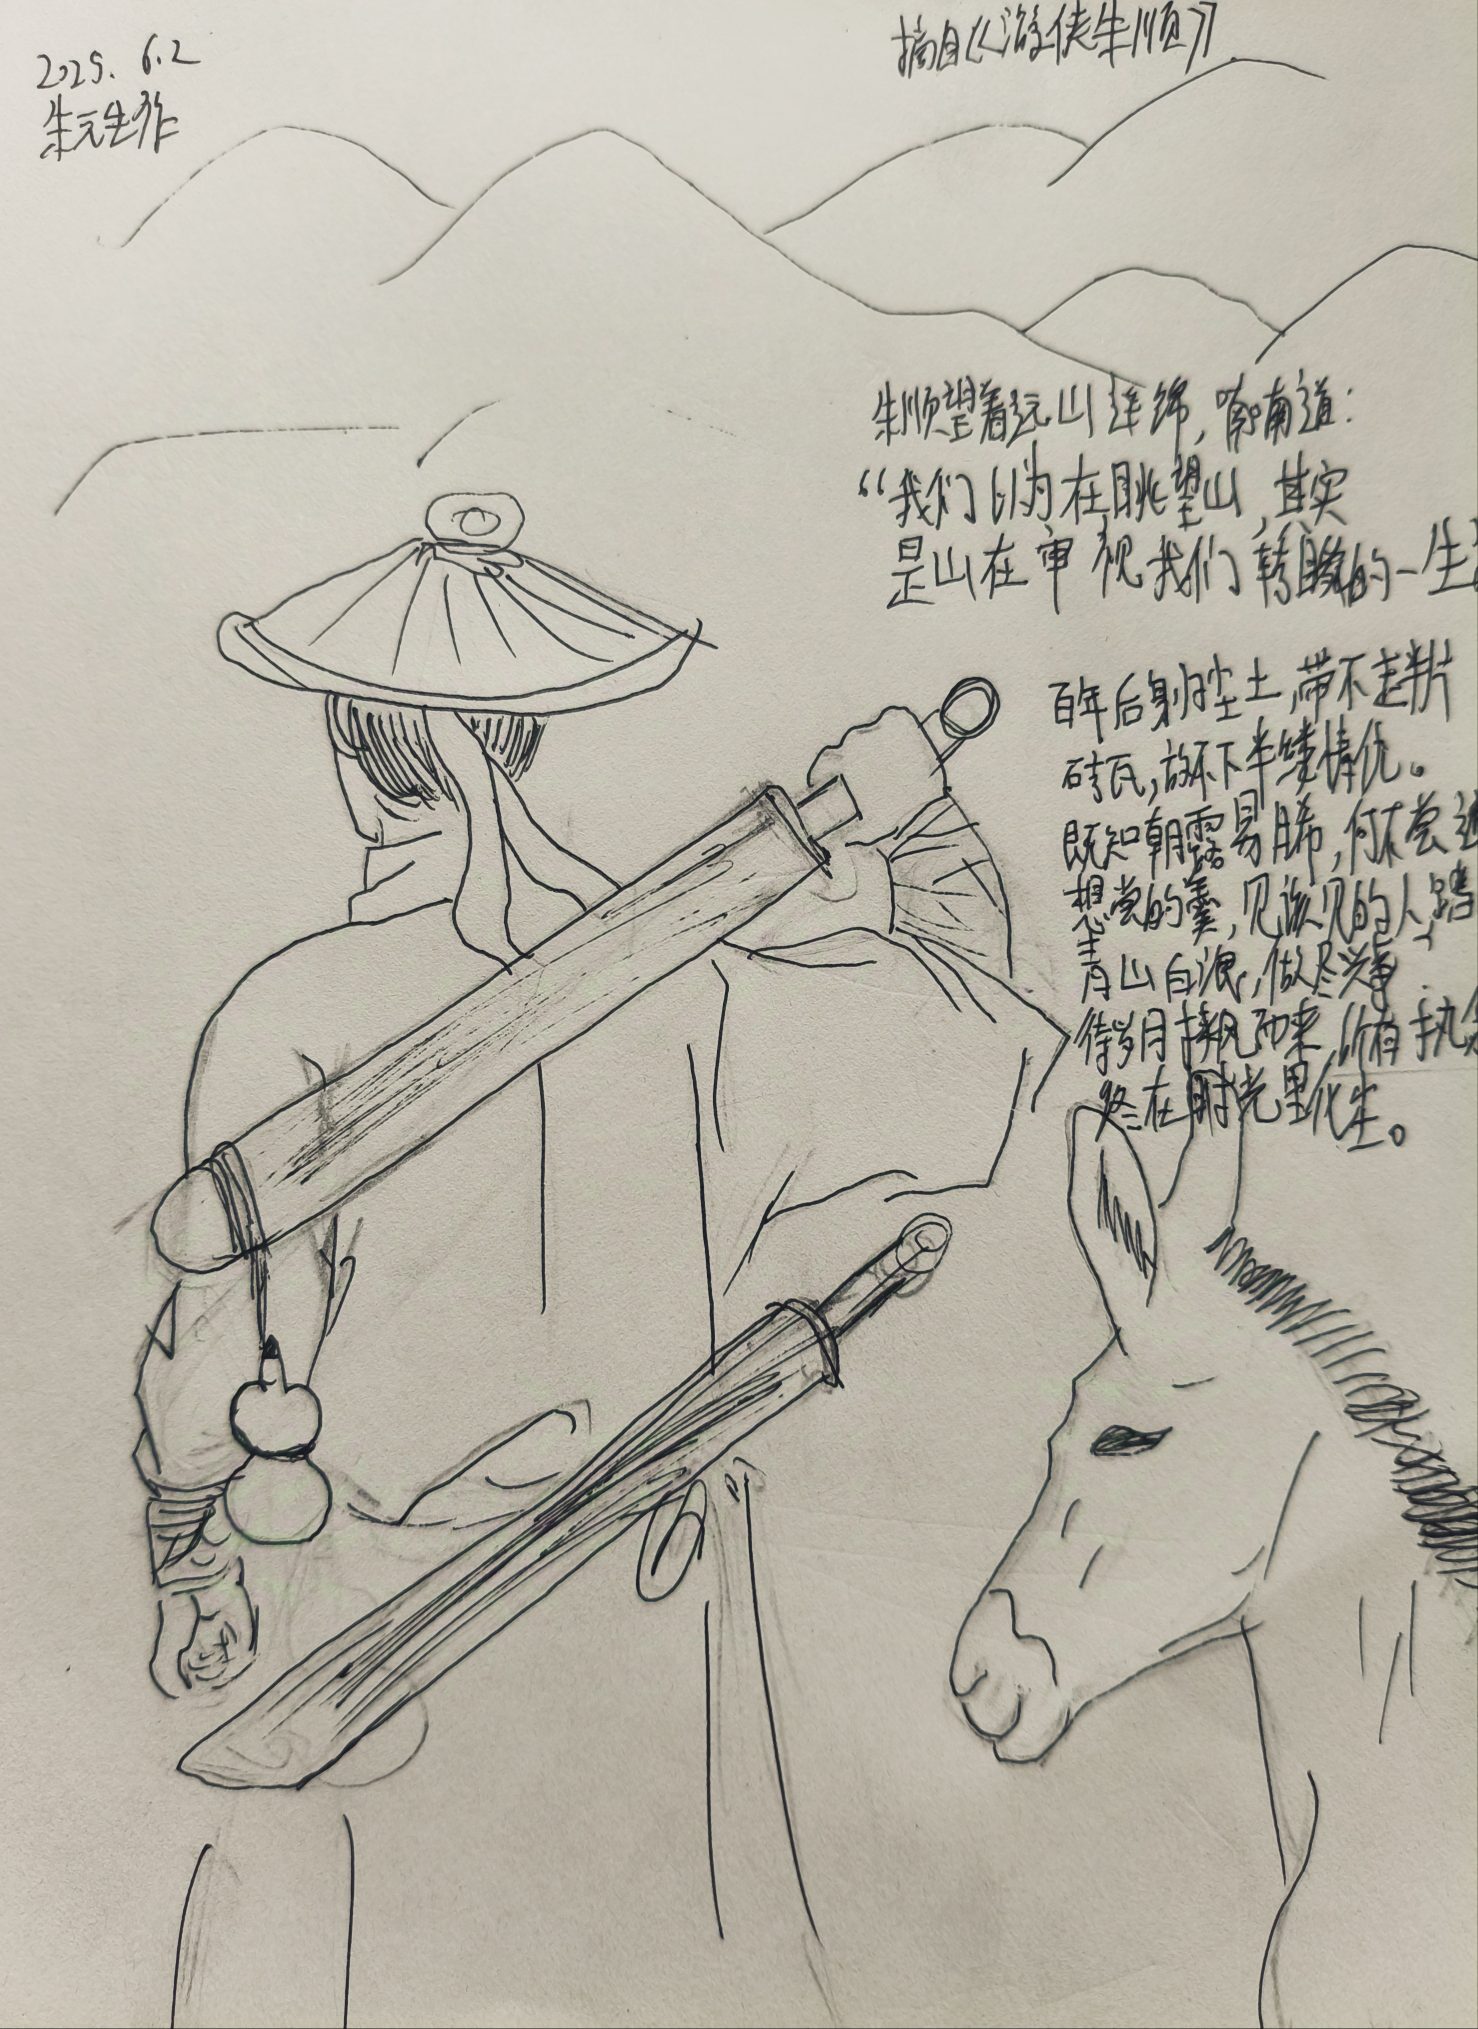 2025. 6.2
朱元生作
摘自《游侠朱顺》
朱顺望着远山连绵，喃喃道：
“我们以为在眺望山，其实
是山在审视我们转瞬的一生
百年后身归尘土，带不走半片
砖瓦，放不下半缕情仇。
既知朝露易晞，何不尝遍
想尝的羹，见该见的人，踏
青山白浪，做尽兴事
待岁月携风而来，所有执念
终在时光里化尘。